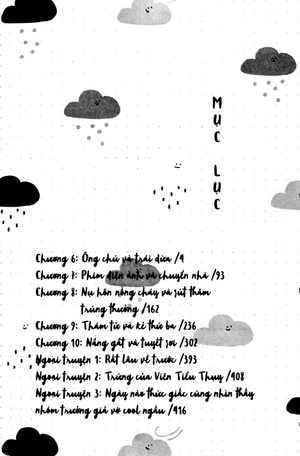 MỤC LỤC
Chương 6: Ông chủ và trái dừa /4
Chương 7: Phim điện ảnh và chuyện nhà /93
Chương 8: Nụ hôn nồng cháy và rút thăm
trúng thưởng /162
Chương 9: Thám tử và kẻ thứ ba /236
Chương 10: Nắng gắt và tuyết rơi /302
Ngoại truyện 1: Rất lâu về trước /393
Ngoại truyện 2: Trứng của Viên Tiểu Thụy /408
Ngoại truyện 3: Ngày nào thức giấc cũng nhìn thấy
nhóm trưởng giả vờ cool ngầu /416